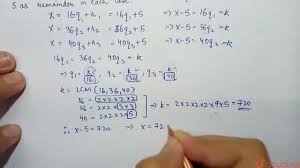 5 as remainder in each case.
x = 16q₁ + r₁ = 16q₁ + 5 ⇒ x-5 = 16q₁ = k
x = 36q₂ + r₂ = 36q₂ + 5 ⇒ x-5 = 36q₂ = k
x = 40q₃ + r₃ = 40q₃ + 5 ⇒ x-5 = 40q₃ = k
q₁ = k/16, q₂ = k/36, q₃ = k/40
k = LCM (16, 36, 40)
16 = 2×2×2×2
36 = 2×2×3×3 ⇒ k = 2×2×2×2×9×5 = 720
40 = 2×2×2×5
∴ x-5 = 720 ⇒ x = 72